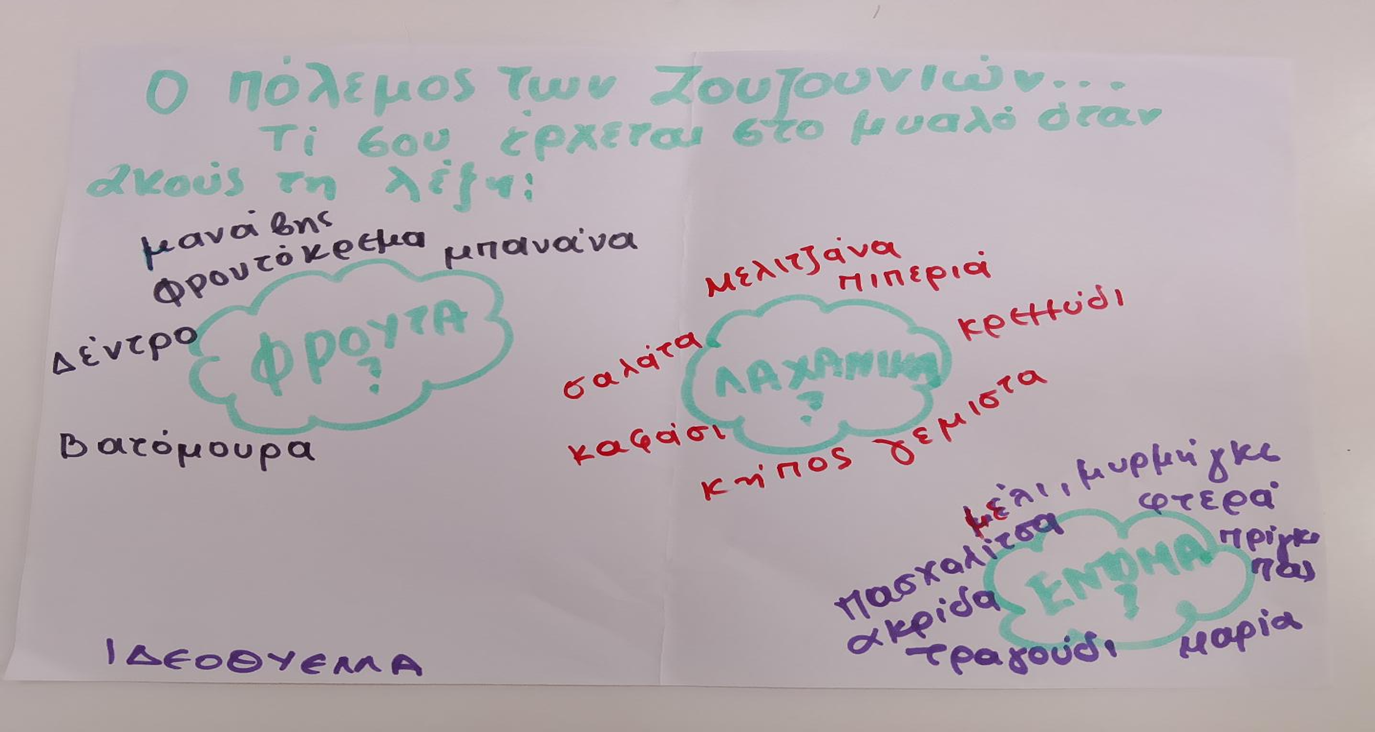 Ο πόλεμος των Ζουζουνιών...
Τί σου έρχεται στο μυαλό όταν
ακούς τη λέξη;
μανάβης
φρουτόκρεμα μπανάνα
Δέντρο
ΦΡΟΥΤΑ
?
Βατόμουρα
μελιτζάνα
πιπεριά
κρεμμύδι
σαλάτα
ΛΑΧΑΝΙΚΑ
?
καφάσι
κήπος γεμιστά
μέλι, μυρμήγκι
φτερά
πασχαλίτσα
πρίγκι
πας
ΕΝΤΟΜΑ
?
ακρίδα
τραγούδι
μαρία
ΙΔΕΟΘΥΕΛΛΑ